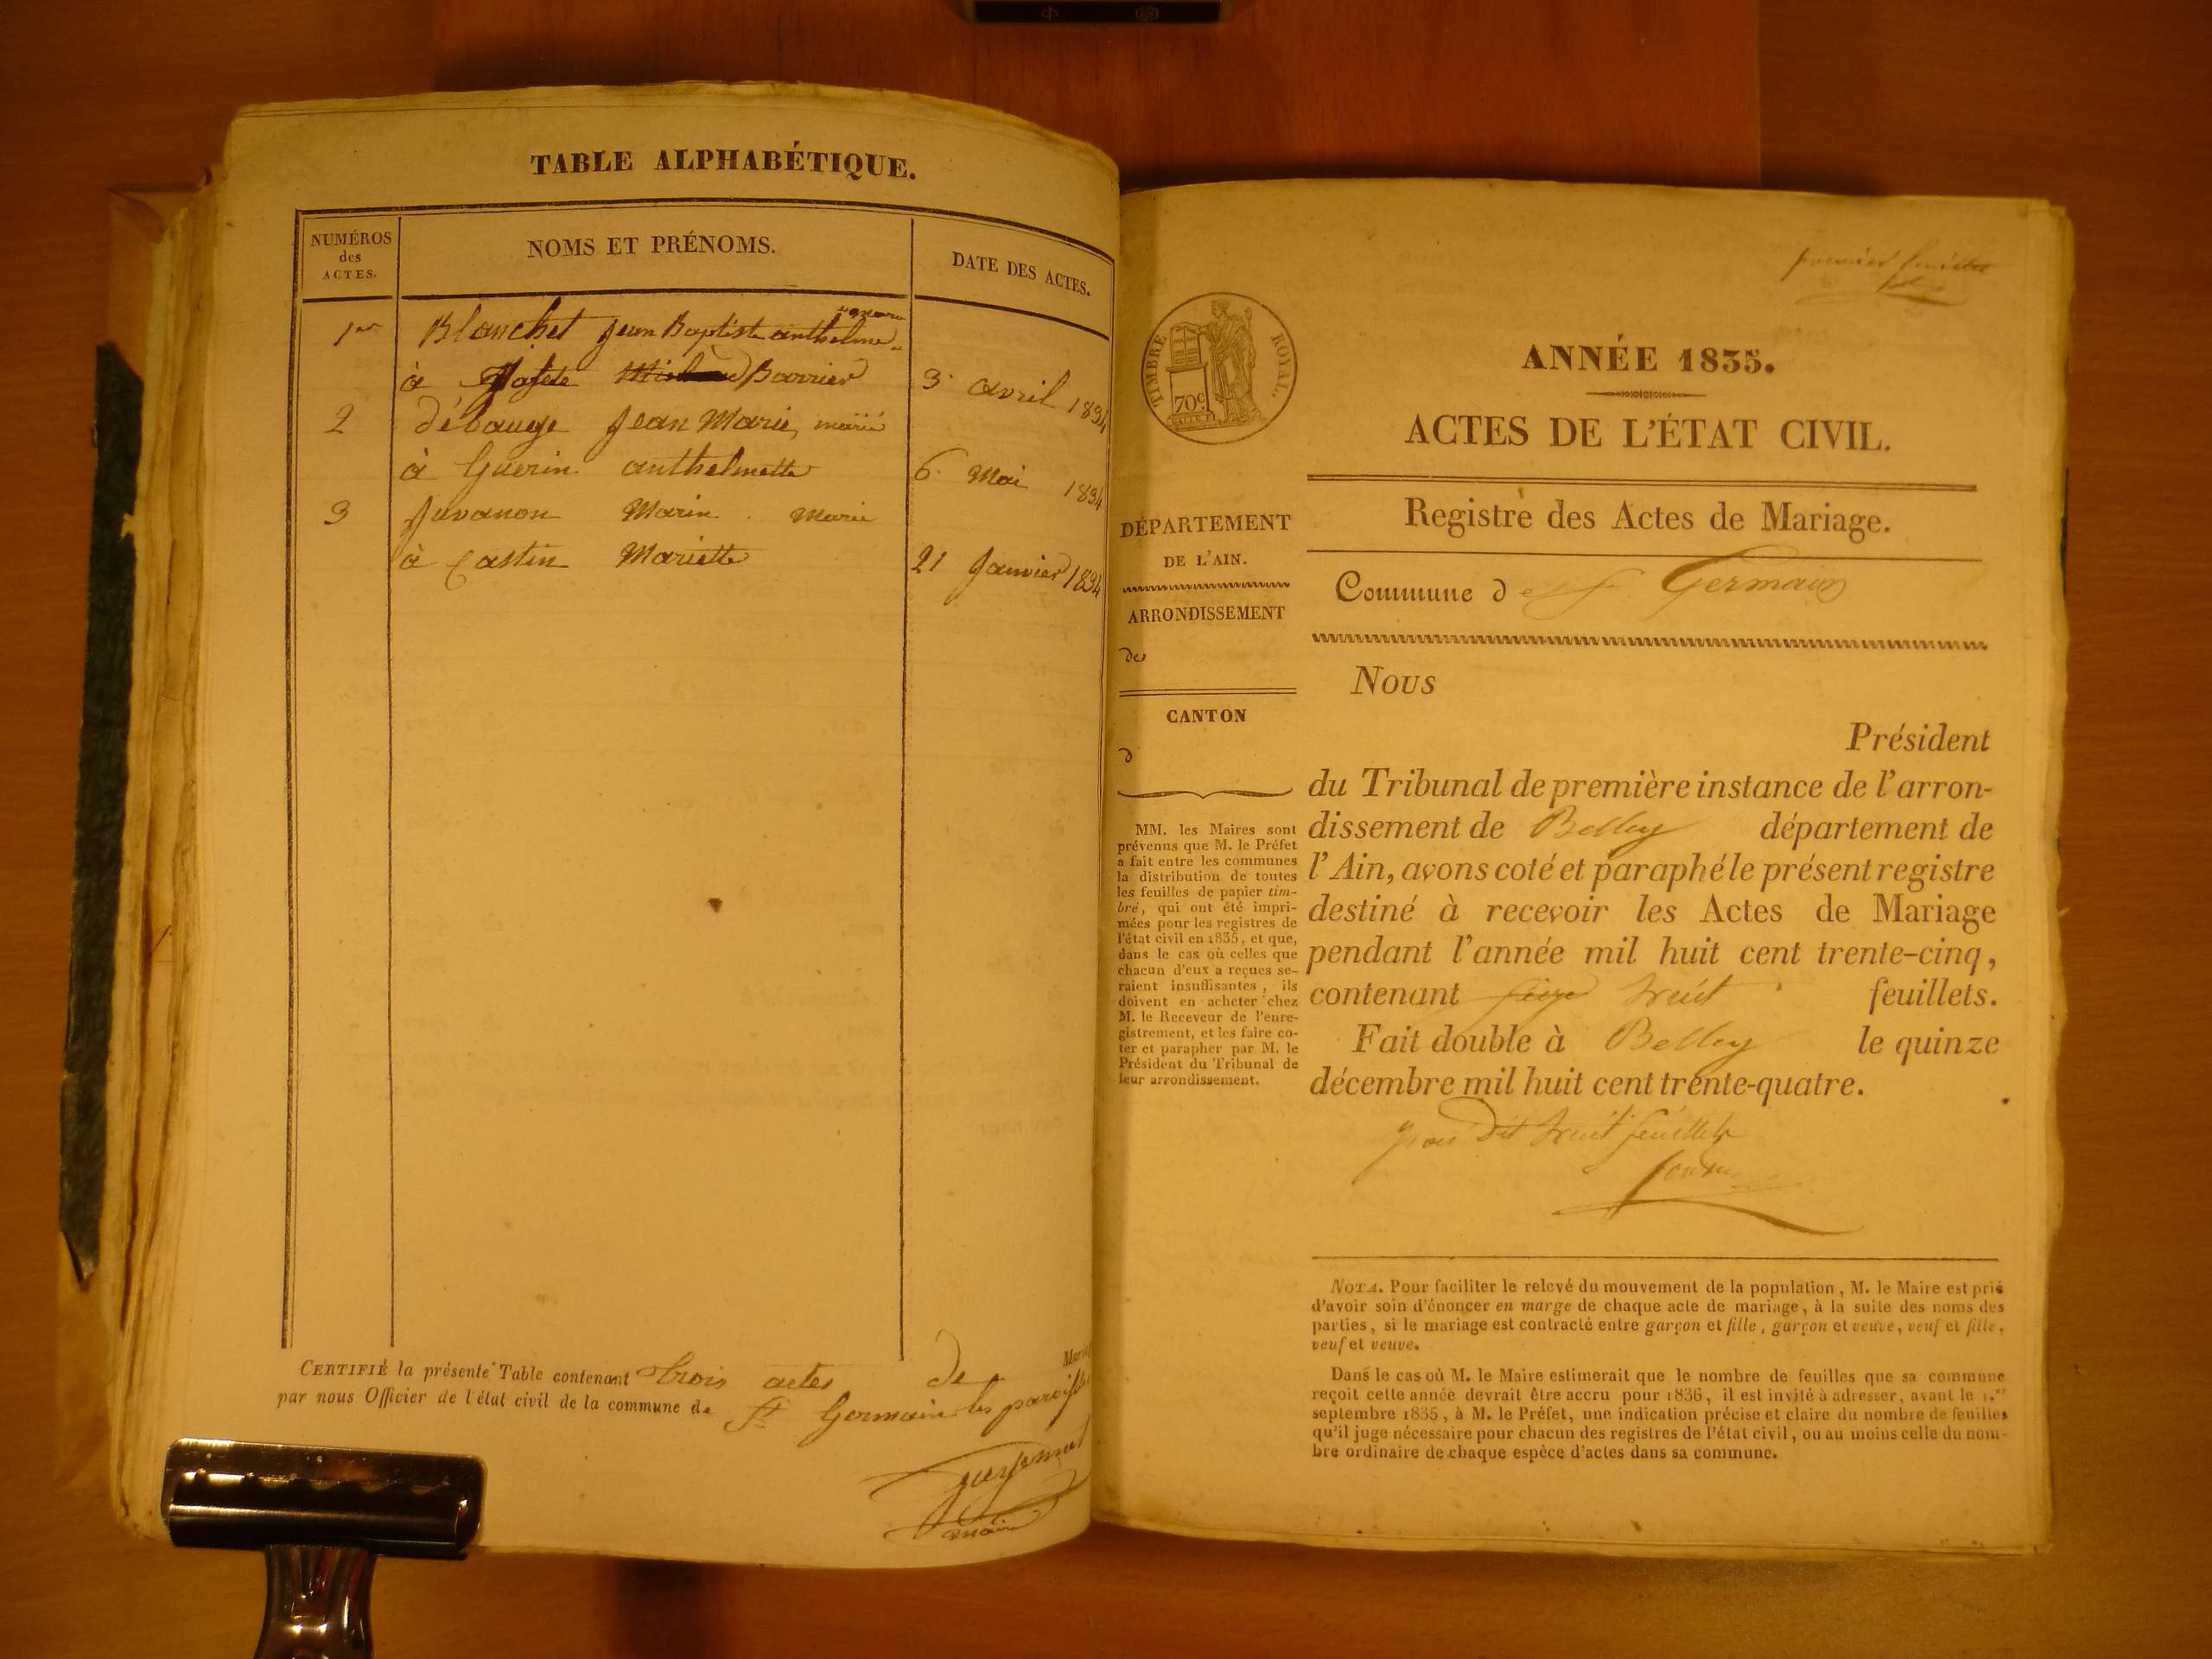 TABLE ALPHABÉTIQUE.
NUMÉROS
des
ACTES.
NOMS ET PRÉNOMS.
DATE DES ACTES.
1er Blanchet Jean Baptiste anthelme
à Barrier 3 avril 1834
2 débauge Jean Marie, marié
à Guerin anthelmette 6 Mai 1834
3 Juvanon Marin Marié
à Castin Mariette 21 Janvier 1834
CERTIFIÉ la présente Table contenant trois actes de
par nous Officier de l'état civil de la commune de St Germain les paroisses
maire
premier feuillet
TIMBRE ROYAL.
70c
ANNÉE 1835.
ACTES DE L'ÉTAT CIVIL.
Registre des Actes de Mariage.
Commune de St Germain
DÉPARTEMENT
DE L'AIN.
ARRONDISSEMENT
de
CANTON
d
MM. les Maires sont
prévenus que M. le Préfet
a fait entre les communes
la distribution de toutes
les feuilles de papier tim-
bré, qui ont été impri-
mées pour les registres de
l'état civil en 1835, et que,
dans le cas où celles que
chacun d'eux a reçues se-
raient insuffisantes, ils
doivent en acheter chez
M. le Receveur de l'enre-
gistrement, et les faire co-
ter et parapher par M. le
Président du Tribunal de
leur arrondissement.
Nous
Président
du Tribunal de première instance de l'arron-
dissement de Belley département de
l'Ain, avons coté et paraphé le présent registre
destiné à recevoir les Actes de Mariage
pendant l'année mil huit cent trente-cinq,
contenant huit feuillets.
Fait double à Belley le quinze
décembre mil huit cent trente-quatre.
huit feuillets
NOTA. Pour faciliter le relevé du mouvement de la population, M. le Maire est prié
d'avoir soin d'énoncer en marge de chaque acte de mariage, à la suite des noms des
parties, si le mariage est contracté entre garçon et fille, garçon et veuve, veuf et fille,
veuf et veuve.
Dans le cas où M. le Maire estimerait que le nombre de feuilles que sa commune
reçoit cette année devrait être accru pour 1836, il est invité à adresser, avant le 1.er
septembre 1835, à M. le Préfet, une indication précise et claire du nombre de feuilles
qu'il juge nécessaire pour chacun des registres de l'état civil, ou au moins celle du nom-
bre ordinaire de chaque espèce d'actes dans sa commune.